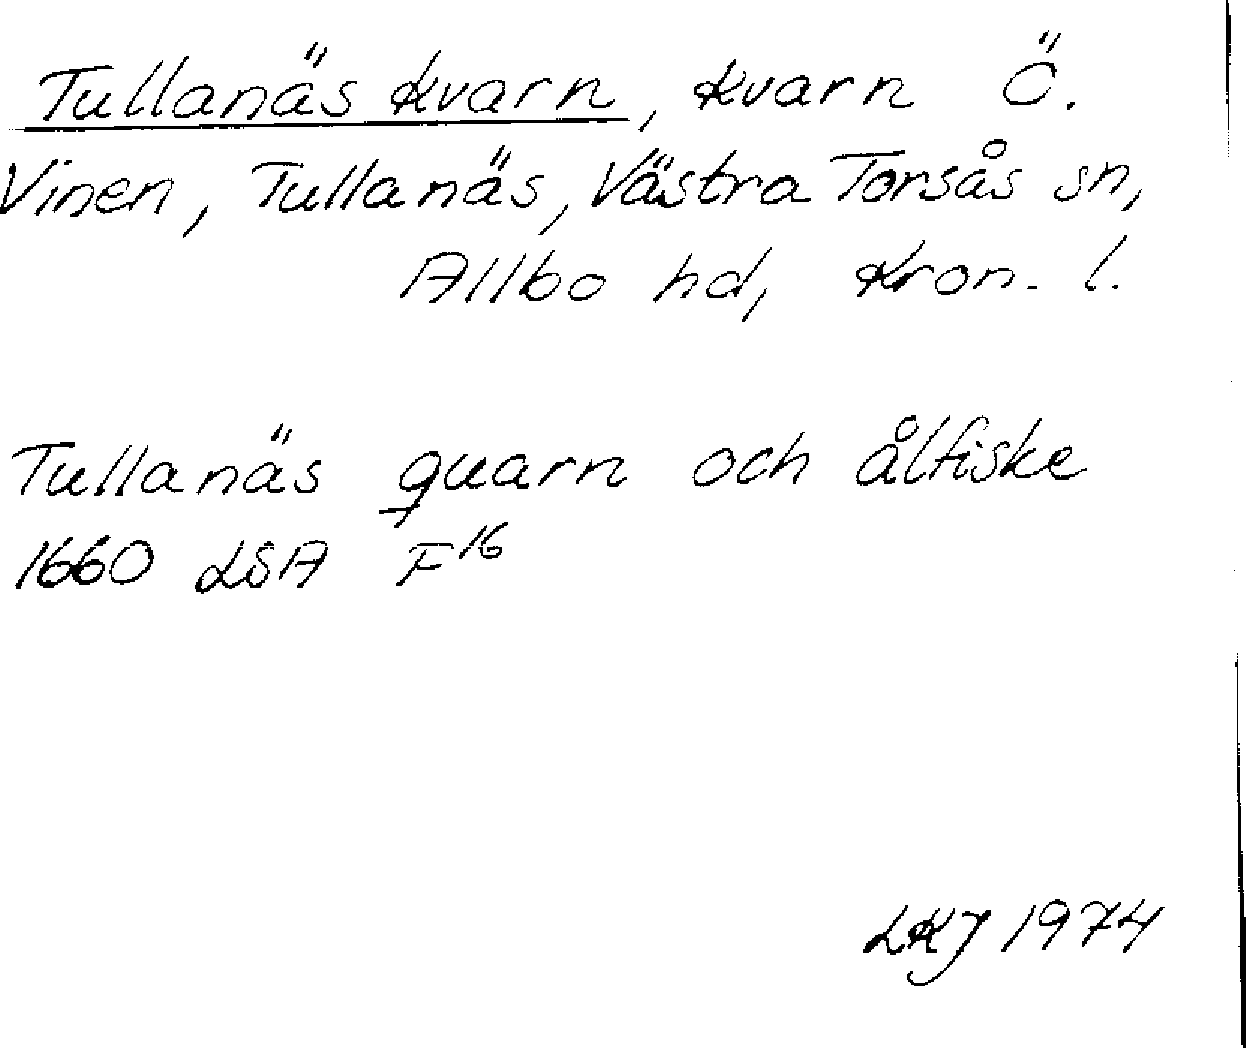 Tullanäs kvarn, kvarn Ö.
Vinen, Tullanäs, Västra Torsås sn,
Allbo hd, Kron. l.
Tullanäs quarn och ålfiske
1660 LSA F16
LKJ 1974